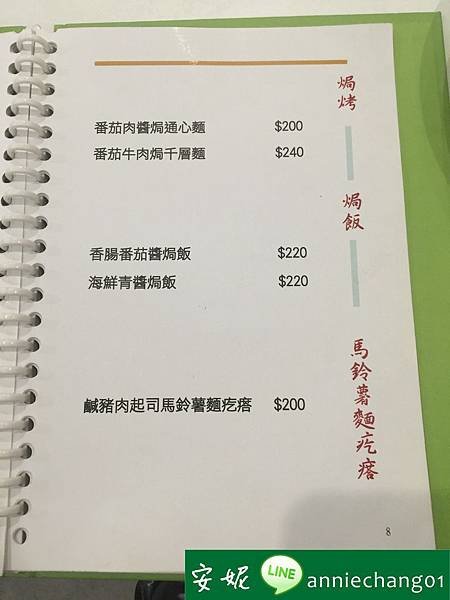 焗烤
番茄肉醬焗通心麵 $200
番茄牛肉焗千層麵 $240
焗飯
香腸番茄醬焗飯 $220
海鮮青醬焗飯 $220
馬鈴薯麵疙瘩
鹹豬肉起司馬鈴薯麵疙瘩 $200
8
安妮 LINE anniechang01